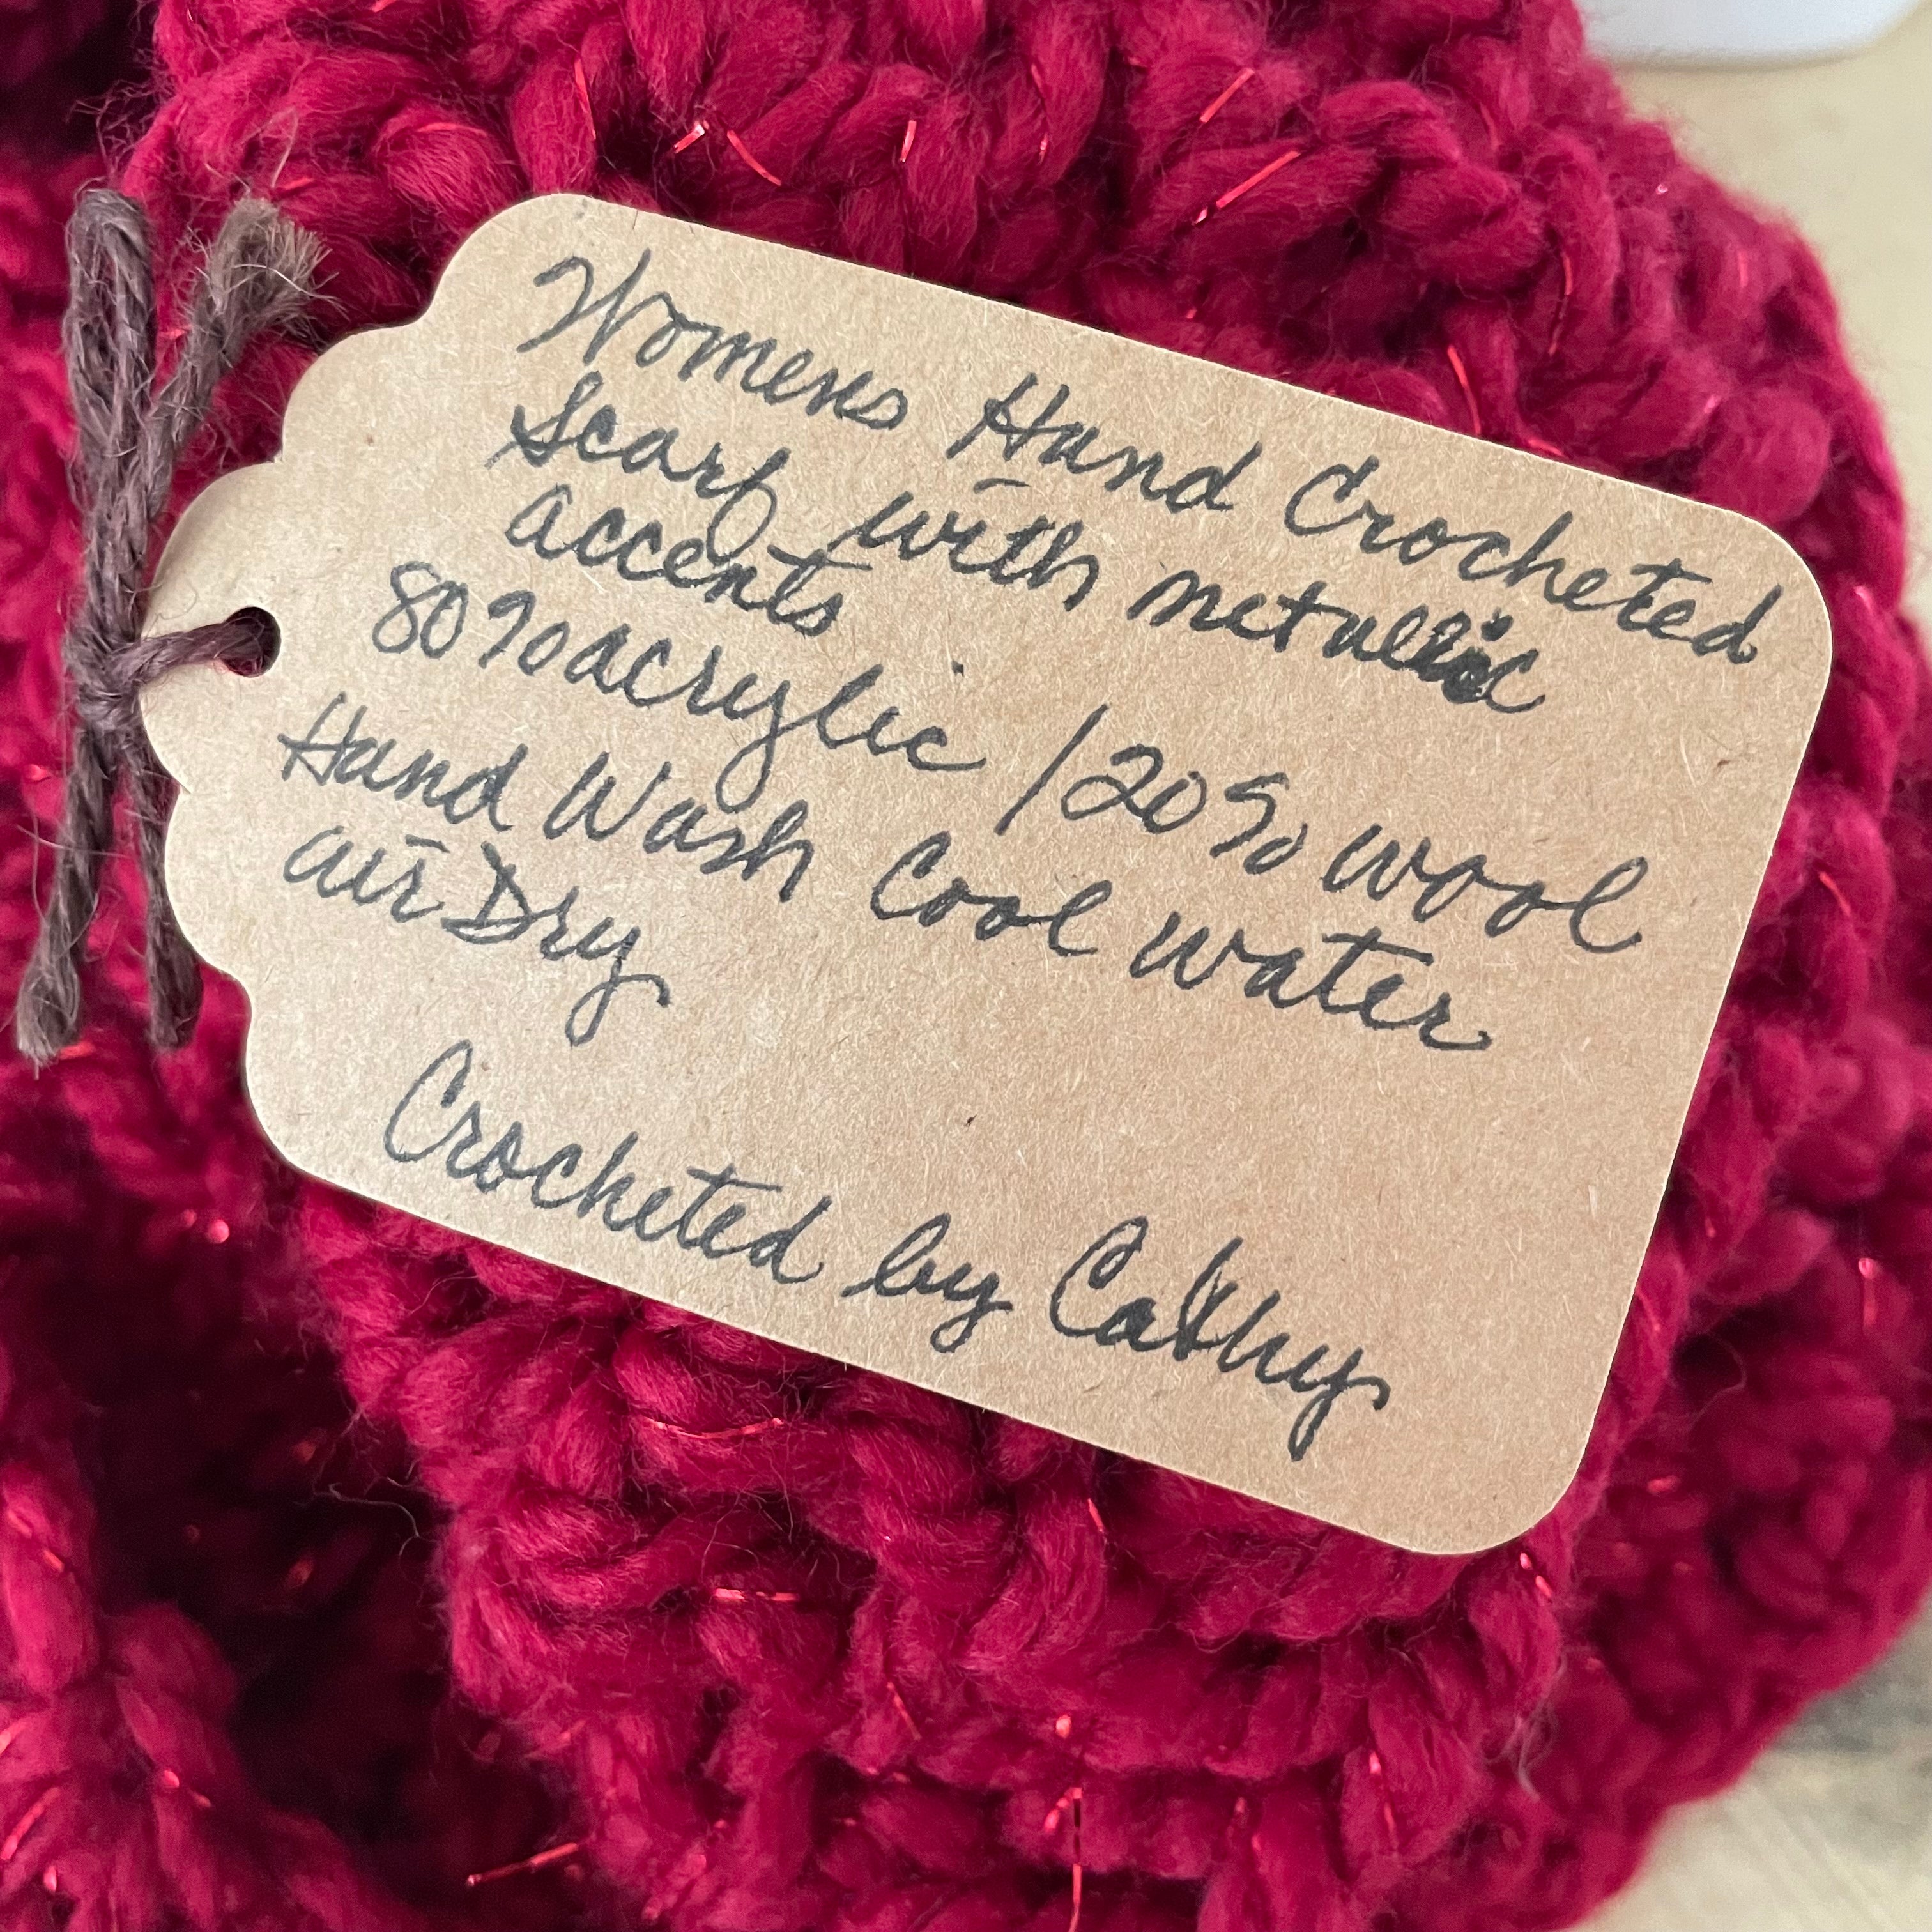 Womens Hand Crocheted
Scarf with metallic
accents
80% acrylic / 20% wool
Hand Wash Cool water
air Dry
Crocheted by Cathy